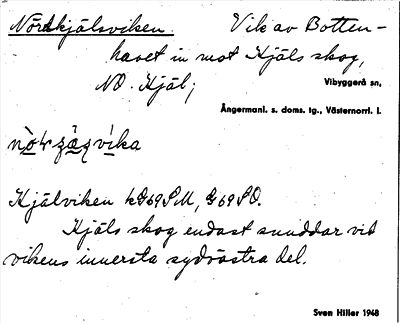 Nordkjälsviken. Vik av Botten-
havet in mot Kjäls skog,
NO. Kjäl;
Vibyggerå sn,
Ångermanl. s. doms. tg., Västernorrl. l.
Kjälviken kG69SM, G69SO.
Kjäls skog endast snuddar vid
vikens innersta sydvästra del.
Sven Hiller 1948